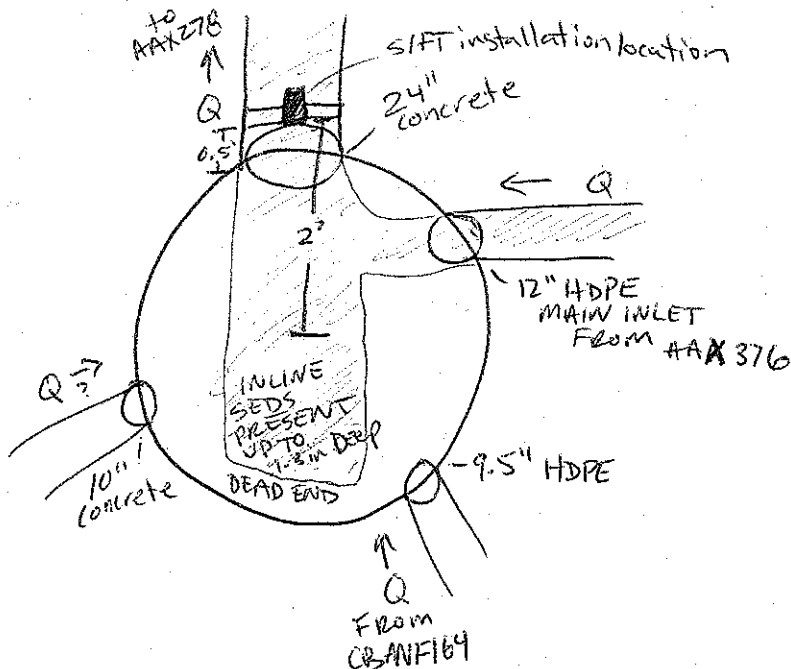 to
AAX278
Q
S/FT installation location
24"
concrete
0.5'
Q
2'
12" HDPE
MAIN INLET
FROM AAX 376
Q
?
INLINE
SEDS
PRESENT
UP TO
in DEEP
DEAD END
10"
concrete
9.5" HDPE
Q
FROM
CBANF164